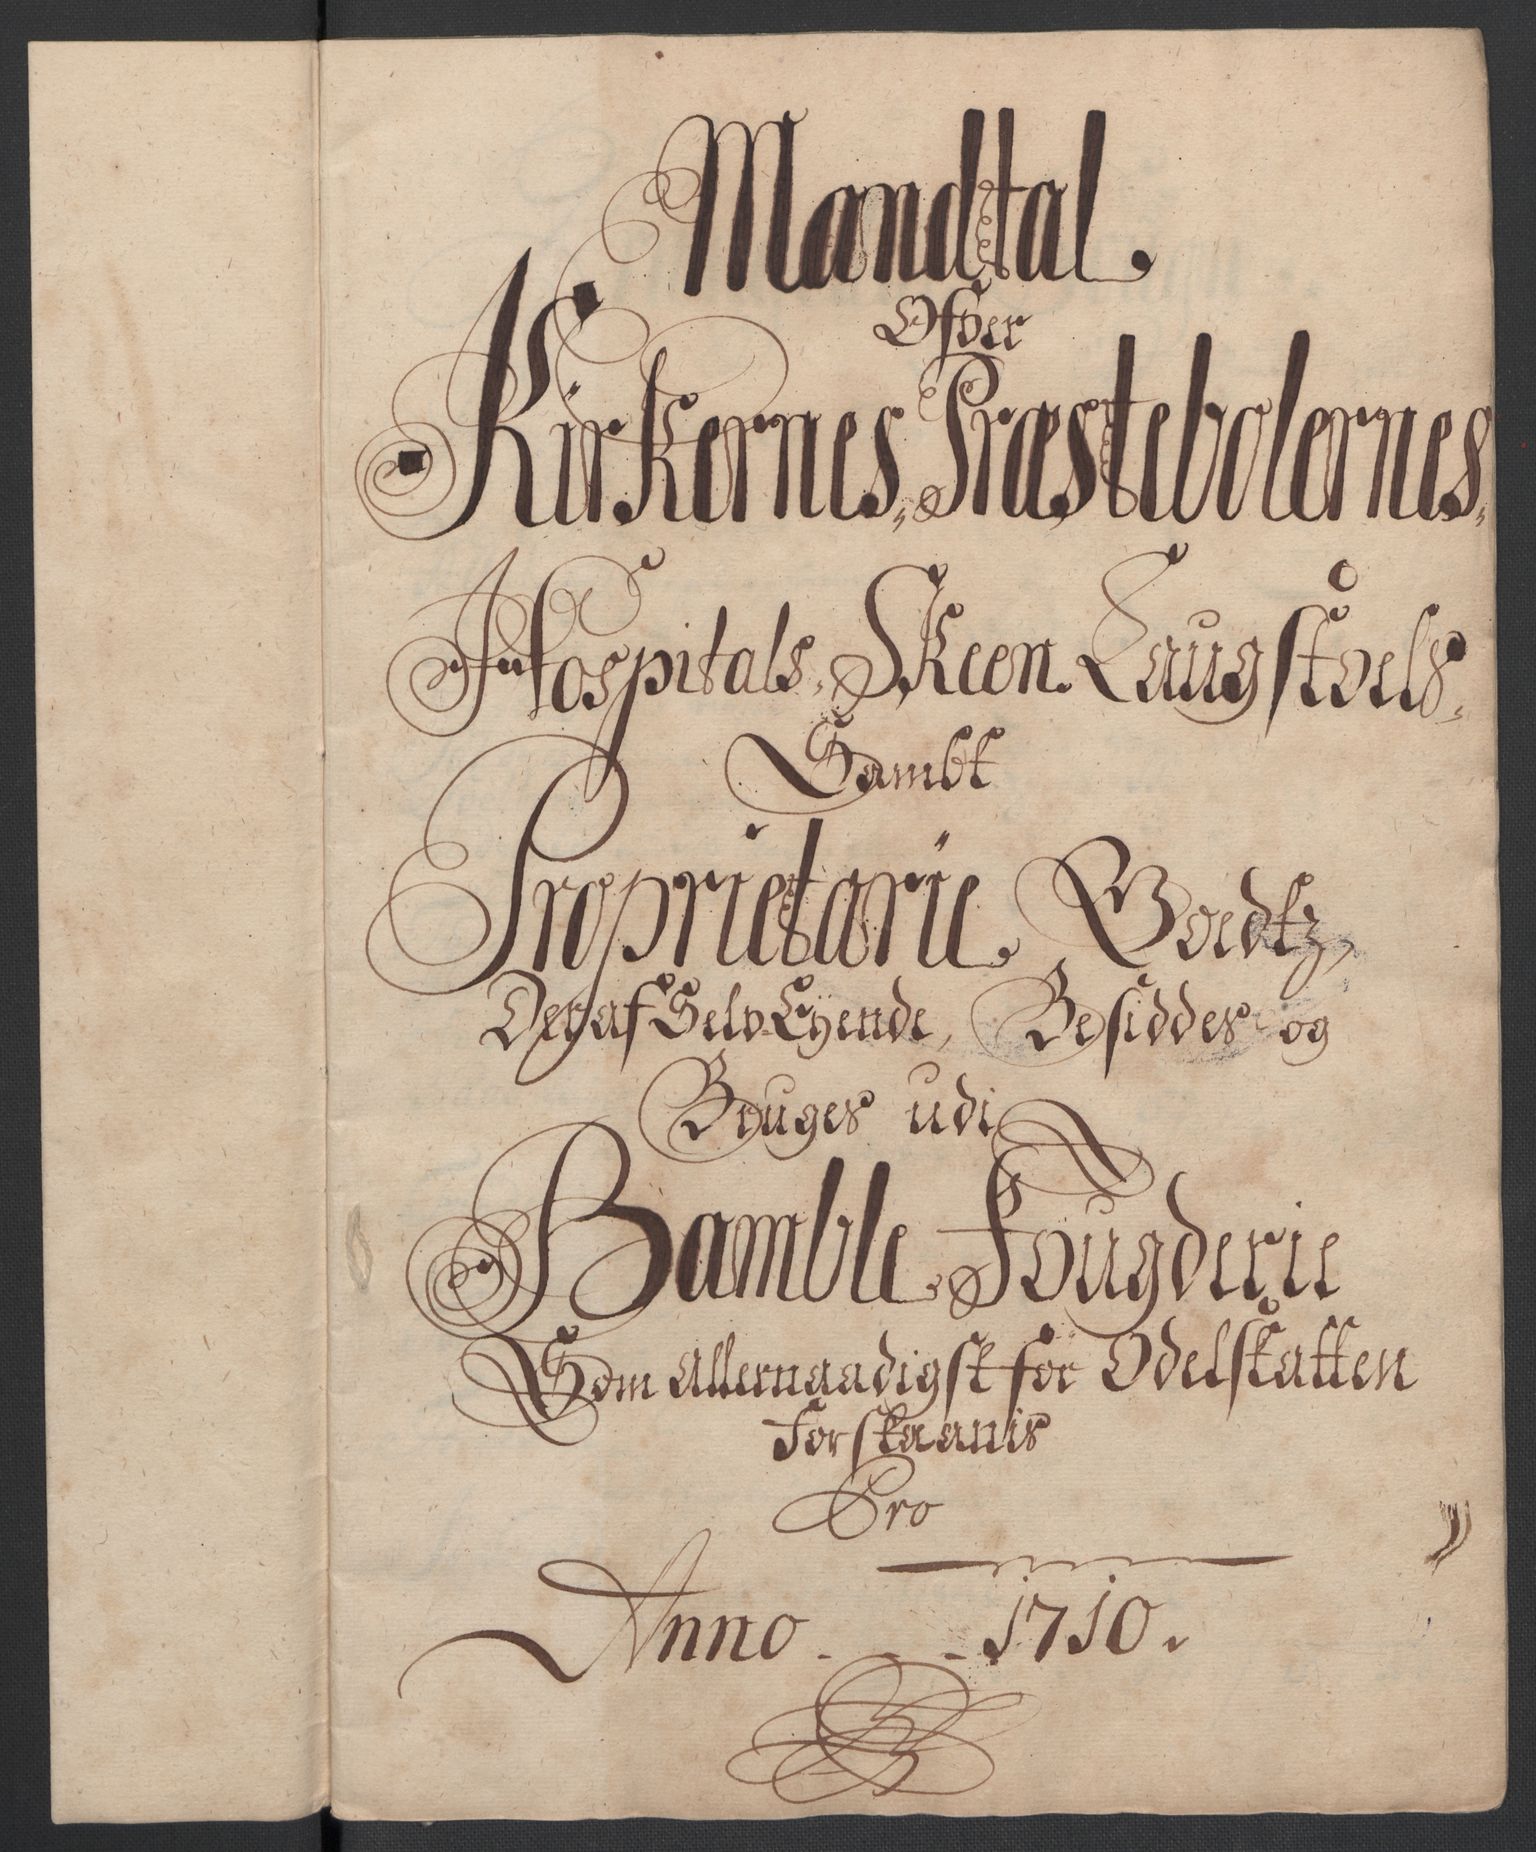 Mandtal.
Ofver
Kirkernes, Præstebolernes,
Hospitals, Skeen. Laugstoels,
Sambt
Proprietarie Goedtz,
Deraf Selv-Eyende, Besiddes og
Bruges udi
Bamble Fougderie
Som allernaadigst for Odelskatten
forskaanis
Pro
Anno - - - 1710.